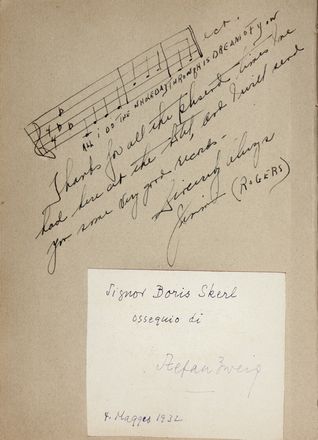 ALL I DO THE WHOLE DAY THROUGH IS DREAM OF YOU
ect.
Thanks for all the pleasant times I've
had here at the and I will send
you some very good records.
Sincerely always
Jimmie (ROGERS)
Signor Boris Skerl
ossequio di
Stefan Zweig
4. Maggio 1932